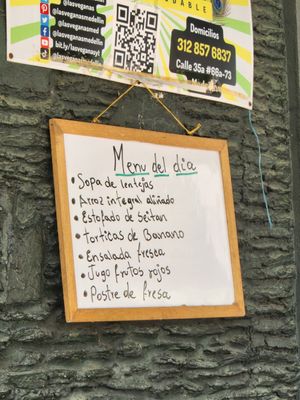 @lasveganasmedellin
@lasveganasmed
@lasveganas
bit.ly/lasveganasyt
Domicilios
312 857 6837
Calle 35a #66a-73
Menu del dia
• Sopa de lentejas
• Arroz integral aliñado
• Estofado de seitan
• Torticas de Banano
• Ensalada fresca
• Jugo frutos rojos
• Postre de fresa